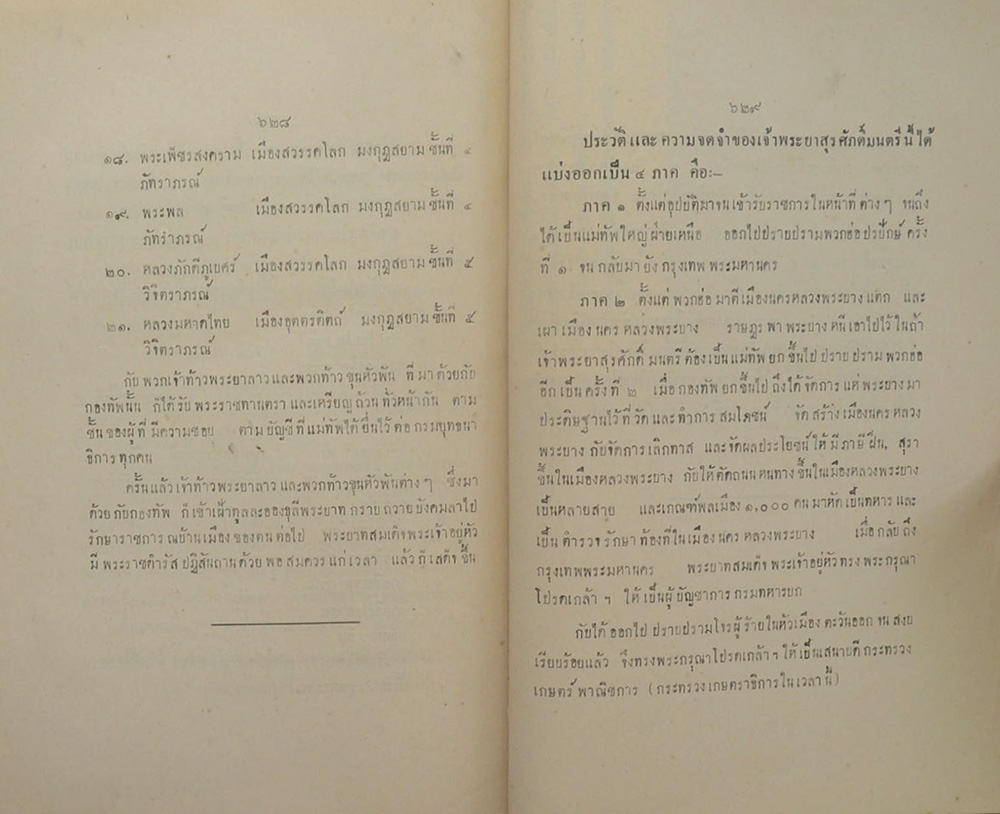 ๖๒๘
๑๘. พระเพ็ชรสงคราม เมืองสวรรคโลก มงกุฎสยามชั้นที่ ๔
ภัทราภรณ์
๑๙. พระพล เมืองสวรรคโลก มงกุฎสยามชั้นที่ ๔
ภัทราภรณ์
๒๐. หลวงภักดีภูเบศร์ เมืองสวรรคโลก มงกุฎสยามชั้นที่ ๕
วิจิตราภรณ์
๒๑. หลวงมหาดไทย เมืองอุตตรดิตถ์ มงกุฎสยามชั้นที่ ๕
วิจิตราภรณ์
กับ พวกเจ้าท้าวพระยาลาว และพวกท้าวขุนหัวพัน ที่มาด้วยกับ
กองทัพนั้น ก็ได้รับ พระราชทานตรา และเหรียญ ถ้วนทั่วหน้ากัน ตาม
ชั้นของผู้ที่มีความชอบ ตามบัญชีที่แม่ทัพได้ยื่นไว้ต่อ กรมยุทธนา
ธิการทุกคน
ครั้นแล้วเจ้าท้าวพระยาลาว และพวกท้าวขุนหัวพันต่างๆ ซึ่งมา
ด้วยกับกองทัพ ก็เข้าเฝ้าทูลละอองธุลีพระบาท กราบถวายบังคมลาไป
รักษาราชการ ณบ้านเมืองของตนต่อไป พระบาทสมเด็จพระเจ้าอยู่หัว
มีพระราชดำรัสปฏิสันถานด้วยพอสมควรแก่เวลา แล้วก็เสด็จขึ้น
๖๒๙
ประวัติและความจดจำของเจ้าพระยาสุรศักดิ์มนตรีนี้ได้
แบ่งออกเป็น ๔ ภาค คือ:–
ภาค ๑ ตั้งแต่อุปบัติมาจนเข้ารับราชการในหน้าที่ต่างๆ จนถึง
ได้เป็นแม่ทัพใหญ่ฝ่ายเหนือ ออกไปปราบปรามพวกฮ่อปรปักษ์ครั้ง
ที่ ๑ จนกลับมายังกรุงเทพพระมหานคร
ภาค ๒ ตั้งแต่พวกฮ่อมาตีเมืองนครหลวงพระบางแตก และ
เผาเมืองนครหลวงพระบาง ราษฎรพาพระบางหนีเอาไปไว้ในถ้ำ
เจ้าพระยาสุรศักดิ์มนตรีต้องเป็นแม่ทัพยกขึ้นไปปราบปรามพวกฮ่อ
อีกเป็นครั้งที่ ๒ เมื่อกองทัพยกขึ้นไปถึงได้จัดการแห่พระบางมา
ประดิษฐานไว้ที่วัดและทำการสมโภชน์ จัดสร้างเมืองนครหลวง
พระบาง กับจัดการเลิกทาส และจัดผลประโยชน์ให้มีภาษีฝิ่น, สุรา
ขึ้นในเมืองหลวงพระบาง กับให้ตัดถนนหนทางขึ้นในเมืองหลวงพระบาง
เป็นหลายสาย และเกณฑ์พลเมือง ๑,๐๐๐ คนมาหัดเป็นทหารและ
เป็นตำรวจรักษาท้องที่ในเมืองนครหลวงพระบาง เมื่อกลับถึง
กรุงเทพพระมหานคร พระบาทสมเด็จพระเจ้าอยู่หัวทรงพระกรุณา
โปรดเกล้าฯ ให้เป็นผู้บัญชาการกรมทหารบก
กับได้ออกไปปราบปรามโจรผู้ร้ายในหัวเมืองตะวันออกจนสงบ
เรียบร้อยแล้ว จึงทรงพระกรุณาโปรดเกล้าฯ ให้เป็นเสนาบดีกระทรวง
เกษตร์พาณิชการ (กระทรวงเกษตราธิการในเวลานี้)